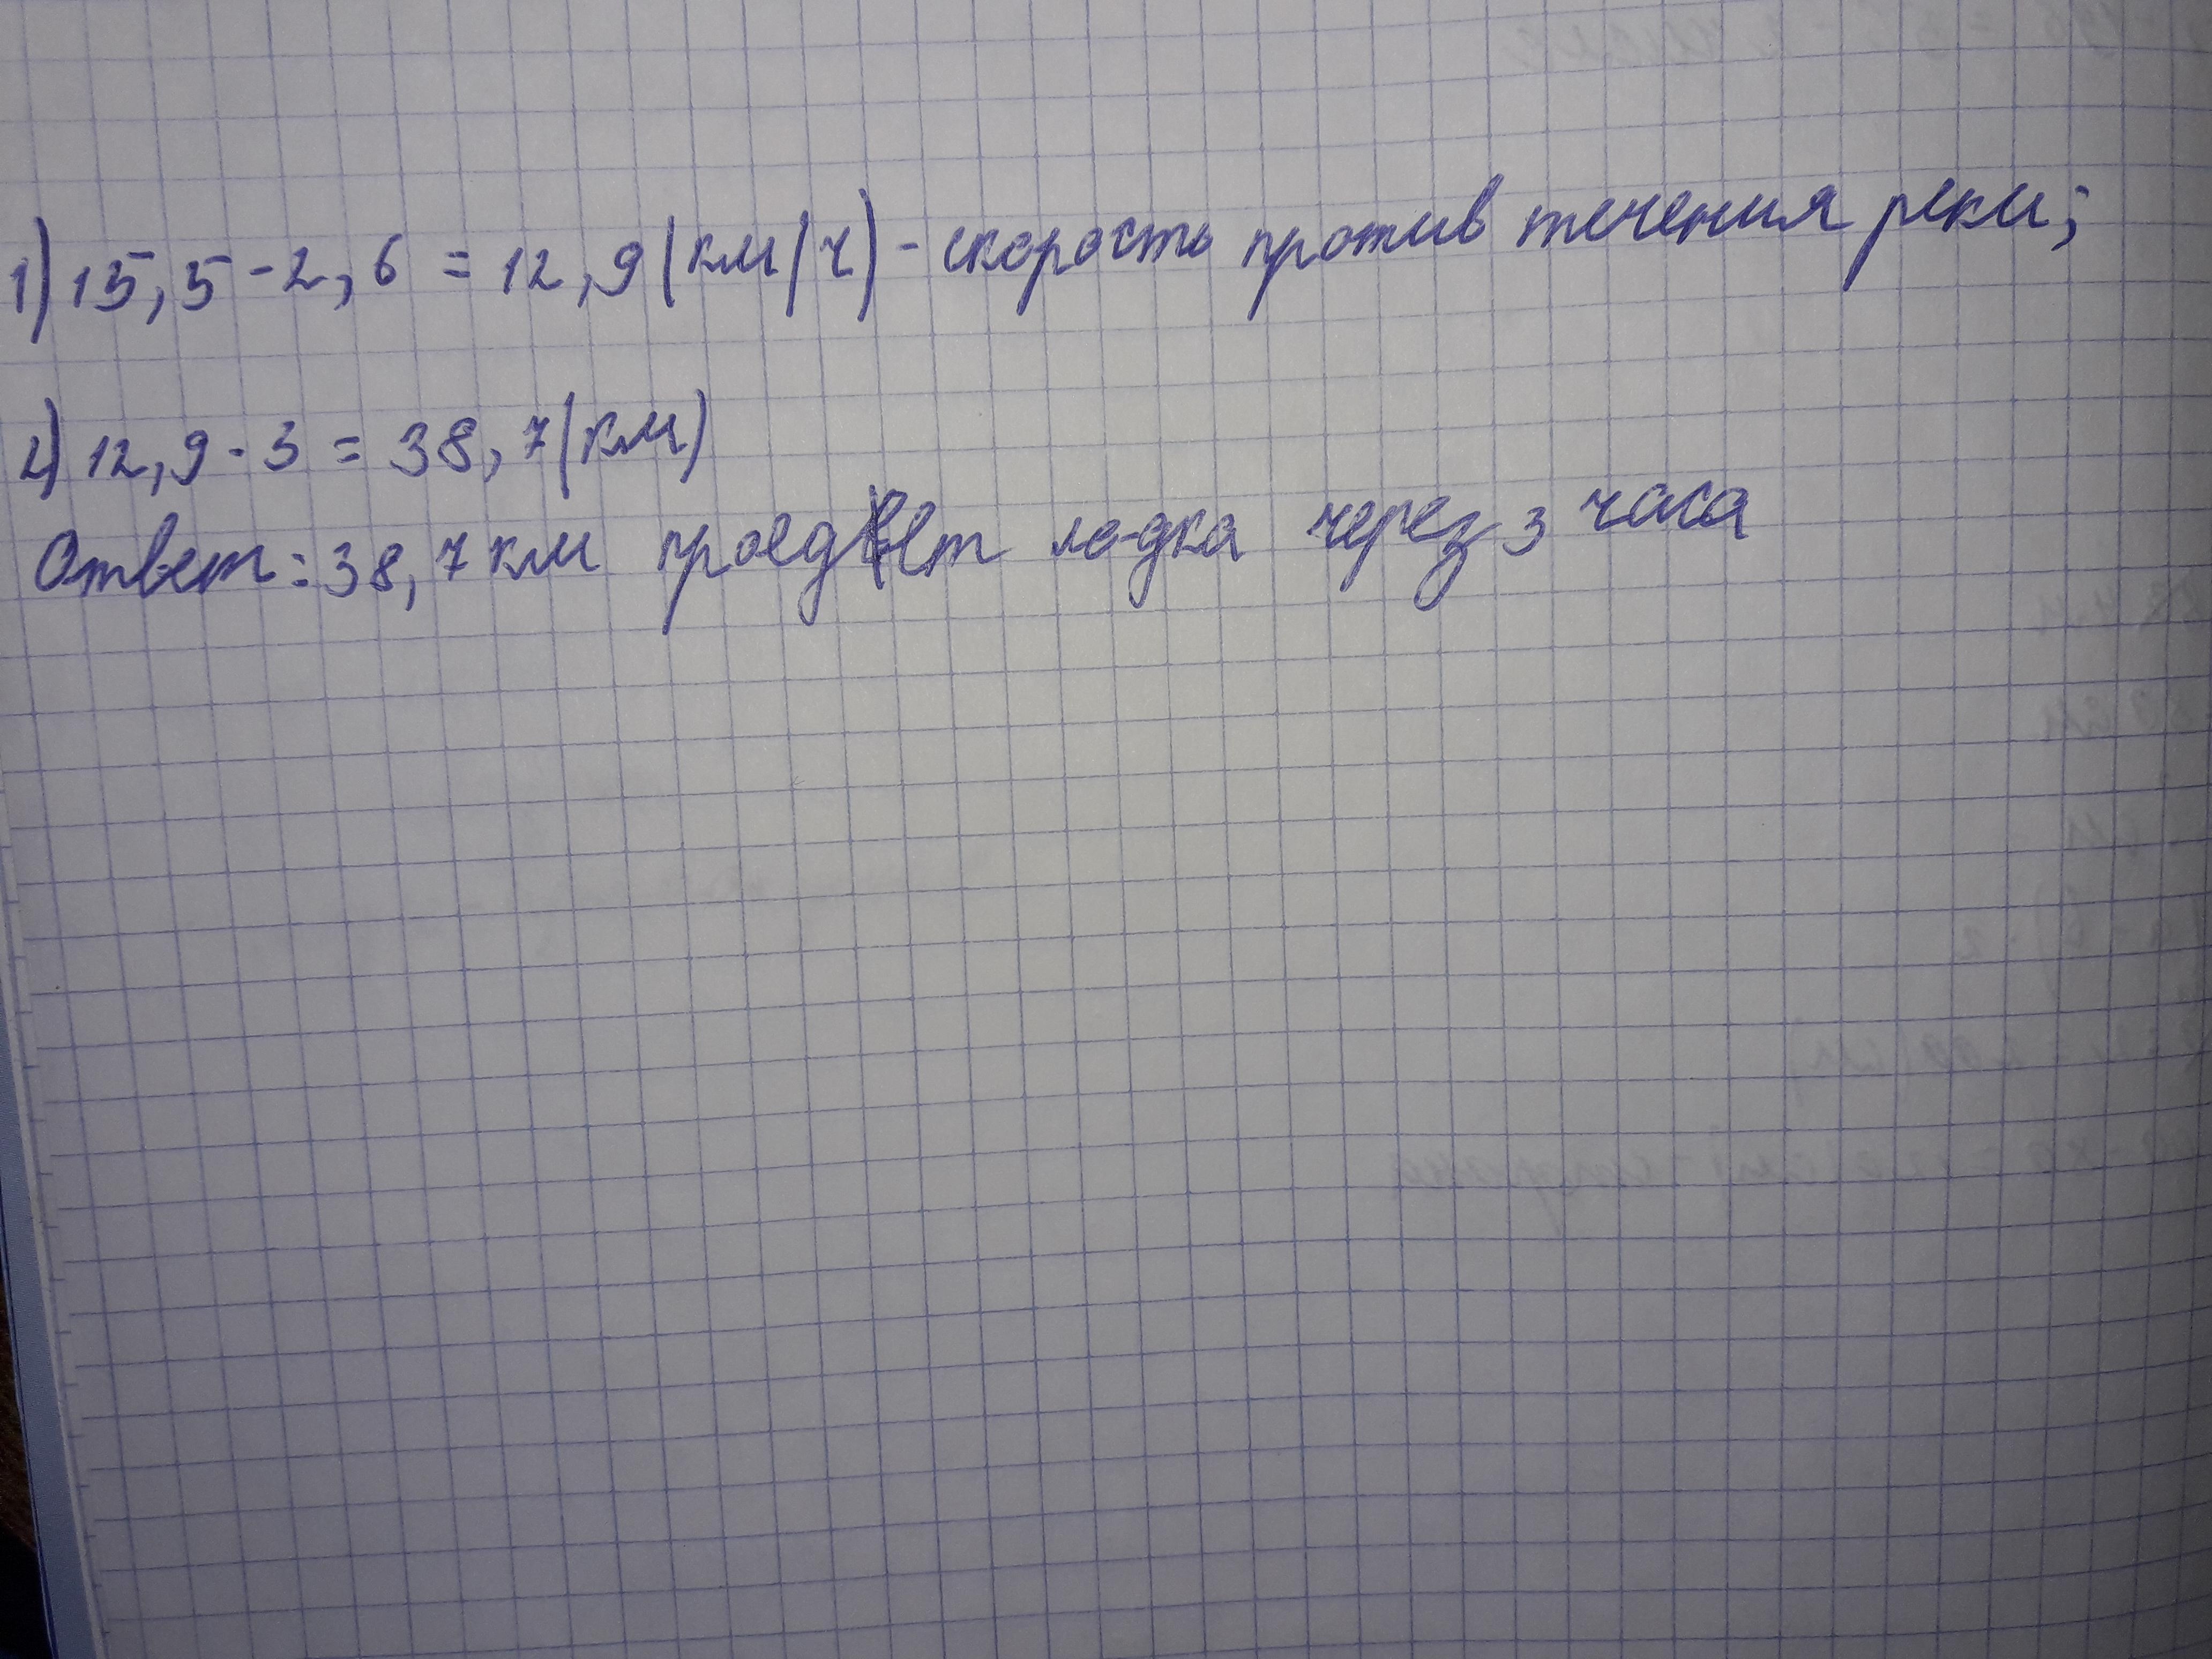 1) 15,5 - 2,6 = 12,9 (км/ч) - скорость против течения реки;
2) 12,9 · 3 = 38,7 (км)
Ответ: 38,7 км проедет лодка через 3 часа